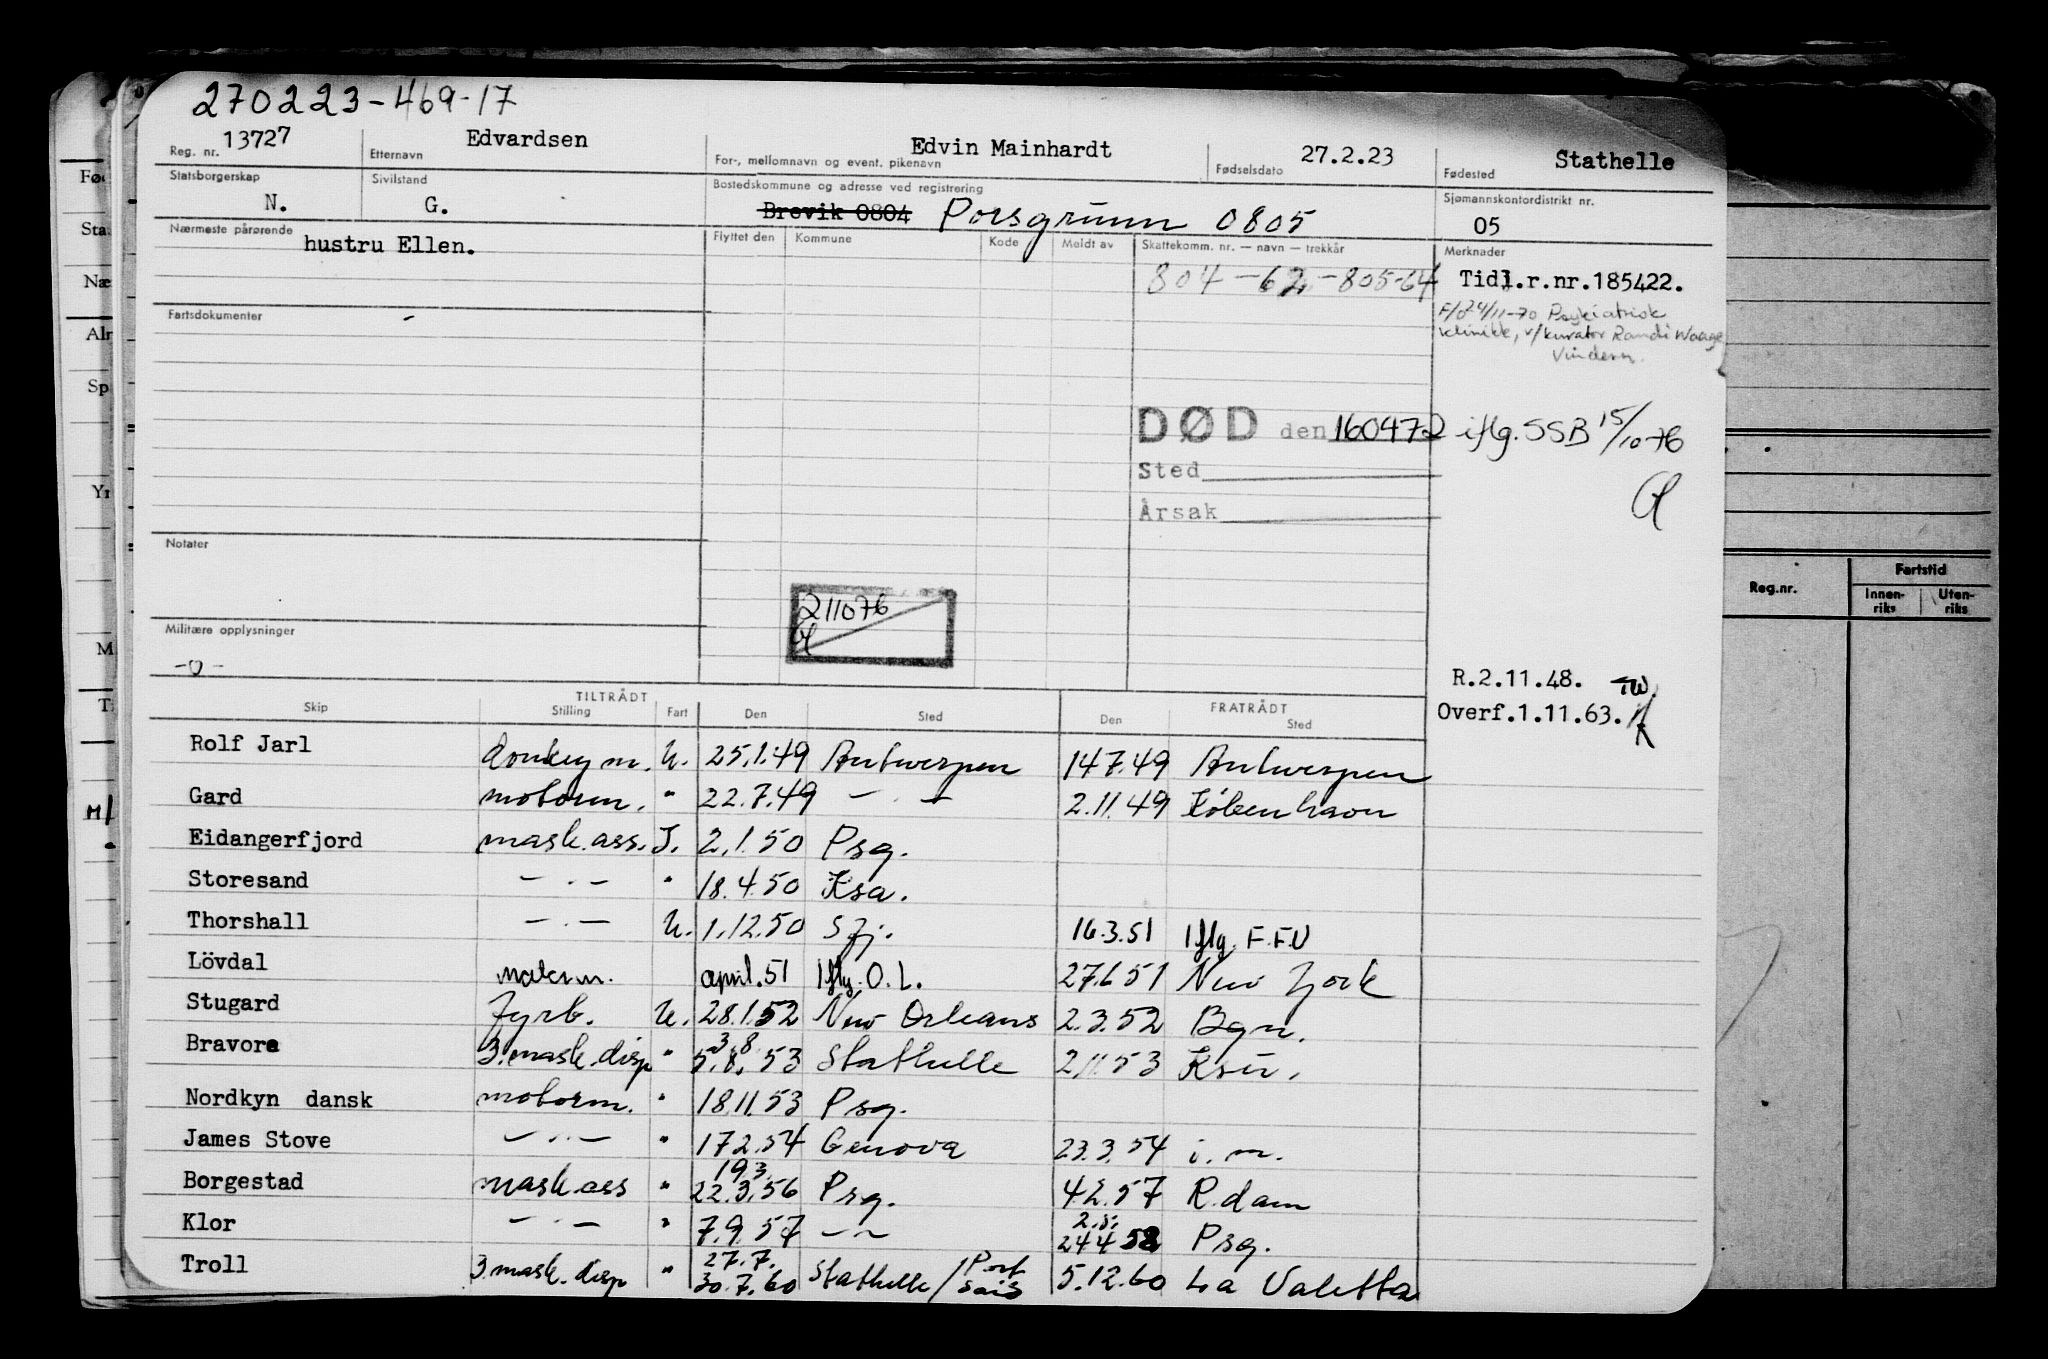 270223-469-17
Reg. nr. 13727 Etternavn Edvardsen For-, mellomnavn og event. pikenavn Edvin Mainhardt Fødselsdato 27.2.23 Fødested Stathelle
Statsborgerskap N. Sivilstand G. Bostedskommune og adresse ved registrering Brevik 0804 Porsgrunn 0805 Sjømannskontordistrikt nr. 05
Nærmeste pårørende hustru Ellen. Flyttet den Kommune Kode Meldt av Skattekomm. nr. — navn — trekkår Merknader
804-62-805-64 Tidl.r.nr.185422.
Fartsdokumenter - F/O 4/11-70 Psykiatrisk
klinikk, v/kurator Randi Waage
Vindern.
DØD den 160472 iflg. SSB 15/10-76
Sted
Årsak
Notater
211076
Militære opplysninger
-0-
R.2.11.48. TW.
Overf.1.11.63.
TILTRÅDT FRATRÅDT
Skip Stilling Fart Den Sted Den Sted
Rolf Jarl donkeym. U. 25.1.49 Antwerpen 147.49 Antwerpen
Gard motorm. " 22.7.49 - . - 2.11.49 København
Eidangerfjord mask.ass. I. 2.1.50 Psg.
Storesand - . - " 18.4.50 Ksa.
Thorshall - . - U. 1.12.50 Sfj. 16.3.51 Iflg. F.F.U
Lövdal motorm. april.51 Iflg. O.L. 27.6.51 New York
Stugard fyrb. U. 28.1.52 New Orleans 2.3.52 Bgn.
Bravore 3.mask.disp " 3.8. 5.8.53 Stathelle 2.11.53 Ksu.
Nordkyn dansk motorm. " 18.11.53 Psg.
James Stove - . - " 172.54 Genova 23.3.54 i.m.
Borgestad mask.ass " 19.3. 22.3.56 Psg. 4.2.57 R.dam
Klor - . - " 7.9.57 - - 2.5. 24458 Psg.
Troll 3.mask.disp " 27.7. 30.7.60 Stathelle/Port Said 5.12.60 La Valetta
Reg.nr. Fartstid
Innen-riks Uten-riks